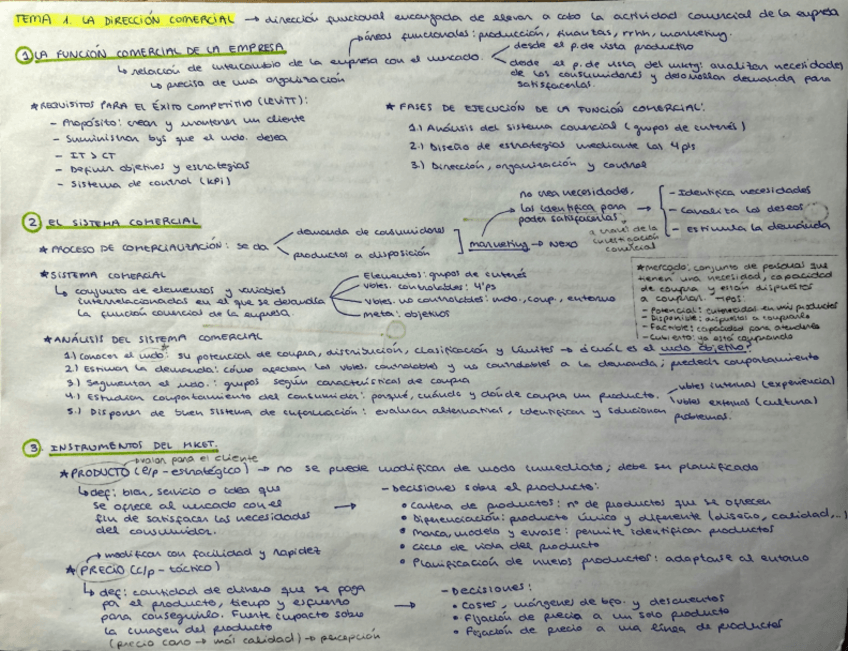 TEMA 1. LA DIRECCIÓN COMERCIAL → dirección funcional encargada de llevar a cabo la actividad comercial de la empresa
→ áreas funcionales: producción, finanzas, rrhh, marketing.
① LA FUNCIÓN COMERCIAL DE LA EMPRESA
↳ relación de intercambio de la empresa con el mercado.
desde el p. de vista productivo
desde el p. de vista del mkty: analizan necesidades
de los consumidores y desarrollan demanda para
satisfacerlas.
↳ precisa de una organización
* REQUISITOS PARA EL ÉXITO COMPETITIVO (LEVITT):
- Propósito: crear y mantener un cliente
- Suministrar bys que el mdo. desea
- IT > CT
- Definir objetivos y estrategias
- Sistema de control (KPI)
* FASES DE EJECUCIÓN DE LA FUNCIÓN COMERCIAL:
1.) Análisis del sistema comercial (grupos de interés)
2.) Diseño de estrategias mediante las 4p's
3.) Dirección, organización y control
② EL SISTEMA COMERCIAL
* PROCESO DE COMERCIALIZACIÓN: se da
demanda de consumidores
productos a disposición
marketing → Nexo
no crea necesidades,
las identifica para
poder satisfacerlas
a través de la
investigación
comercial
- Identifica necesidades
- Canaliza los deseos
- Estimula la demanda
* SISTEMA COMERCIAL
↳ conjunto de elementos y variables
interrelacionados en el que se desarrolla
la función comercial de la empresa.
Elementos: grupos de interés
Vbles. controlables: 4'ps
Vbles. no controlables: mdo., comp., entorno
meta: objetivos
* mercado: conjunto de personas que
tienen una necesidad, capacidad
de compra y están dispuestos
a comprar. TIPOS:
- Potencial: interesados en mis productos
- Disponible: dispuestos a comprarlo
- Factible: capacidad para atenderles
- Cubierto: ya está comprando
* ANÁLISIS DEL SISTEMA COMERCIAL
1) Conocer el mdo*: su potencial de compra, distribución, clasificación y límites → ¿cuál es el mdo objetivo?
2) Estimar la demanda: cómo afectan las vbles controlables y no controlables a la demanda; predecir comportamiento
3) Segmentar el mdo.: grupos según características de compra
4.) Estudiar comportamiento del consumidor: porqué, cuándo y dónde compra un producto.
vbles internas (experiencia)
vbles externas (cultura)
5.) Disponer de buen sistema de información: evaluar alternativas, identifican y solucionan problemas.
③ INSTRUMENTOS DEL MKET.
→ valor para el cliente
* PRODUCTO (l/p - estratégico) → no se puede modificar de modo inmediato; debe ser planificado
↳ def: bien, servicio o idea que
se ofrece al mercado con el
fin de satisfacer las necesidades
del consumidor.
→
- Decisiones sobre el producto:
• Cartera de productos: nº de productos que se ofrecen
• Diferenciación: producto único y diferente (diseño, calidad,...)
• Marca, modelo y envase: permite identificar productos
• Ciclo de vida del producto
• Planificación de nuevos productos: adaptarse al entorno
→ modifican con facilidad y rapidez
* PRECIO (c/p - táctico)
↳ def: cantidad de dinero que se paga
por el producto, tiempo y esfuerzo
para conseguirlo. Fuerte impacto sobre
la imagen del producto
(precio caro → más calidad) → percepción
→
- Decisiones:
• Costes, márgenes de bfo. y descuentos
• Fijación de precio a un solo producto
• Fijación de precio a una línea de productos